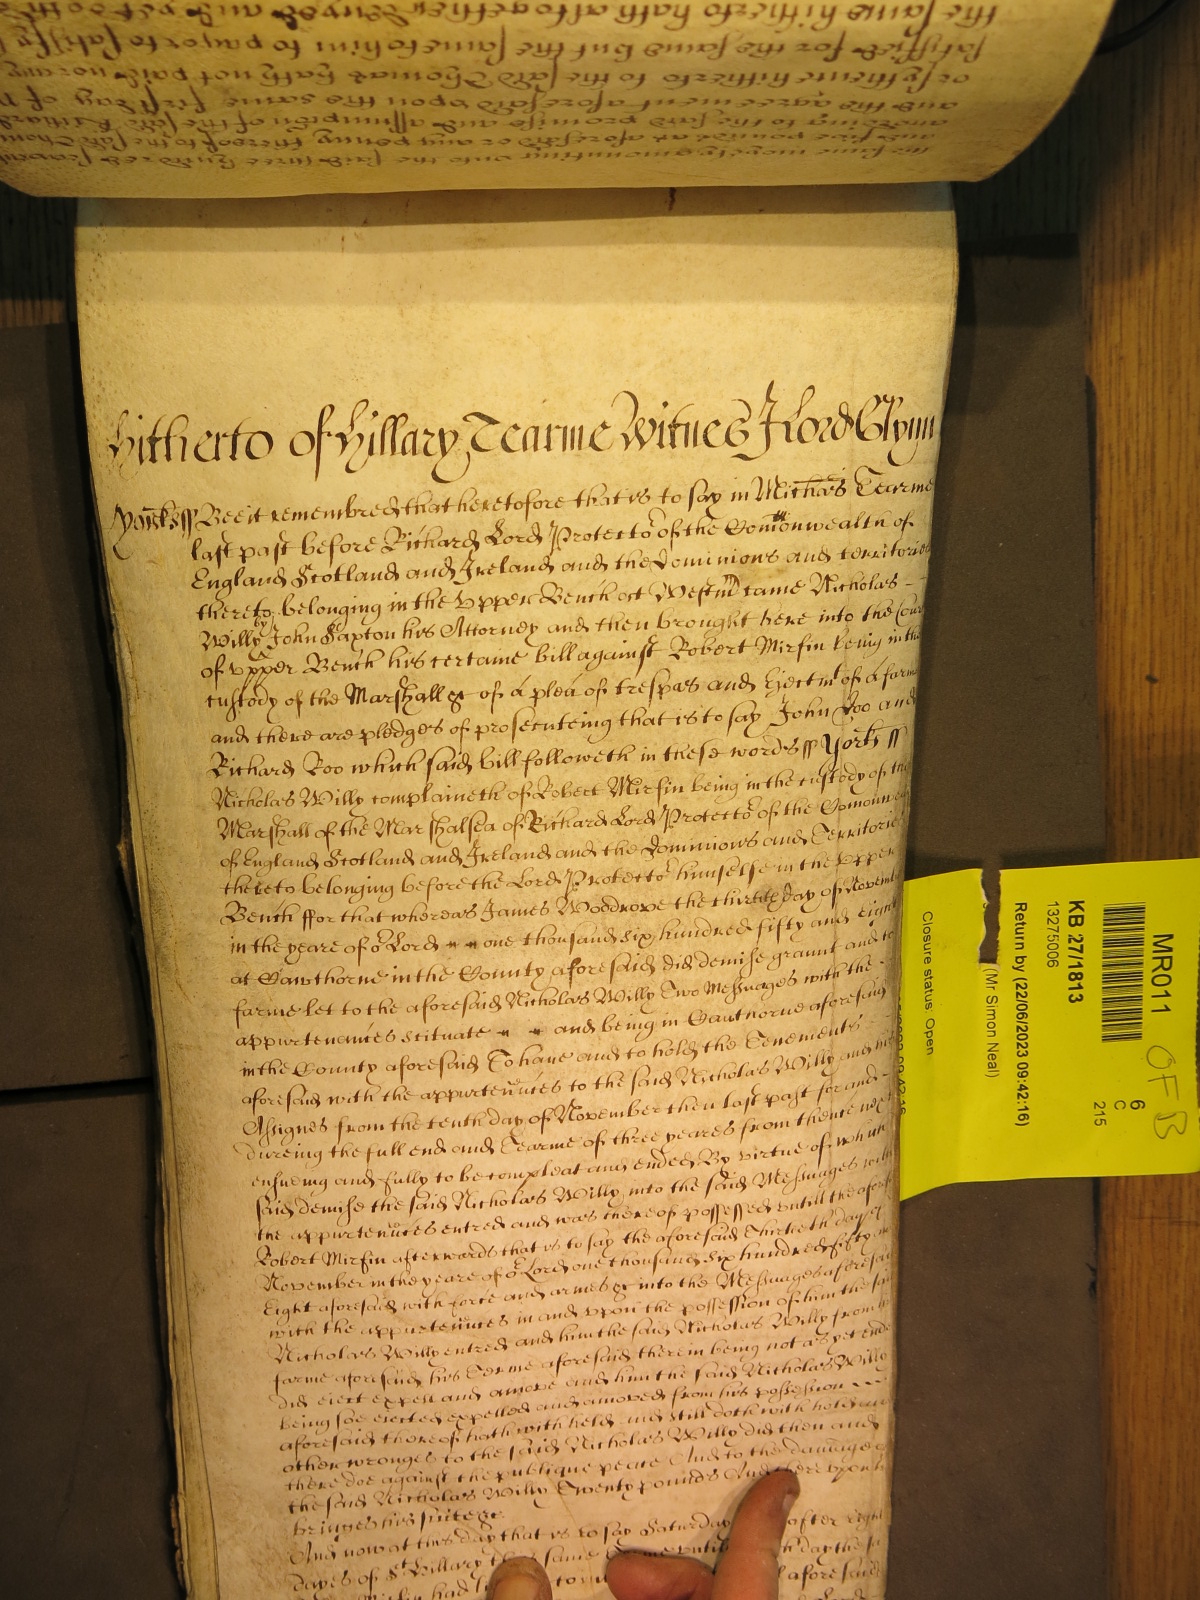 the same hitherto hath altogether denyed and yet doth
satysfied for the same but the same to him to pay or to satisfy
or sythence hitherto to the said Thomas hath not paid nor any
and the agreement aforesaid upon the same first day of
according to the said promise and assumption of the said Richard
and five pounds as aforesaid or any penny thereof to the said Thomas
the same moneyes amounting unto the said three hundred seaventy
hitherto of Hillary Tearme Witnes J Lord Glynn
Yorks ss Bee it remembred that heretofore that is to say in Michas Tearme
last past before Richard Lord Protector of the Comonwealth of
England Scotland and Ireland and the Dominions and territories
thereto belonging in the Upper Bench att Westmr came Nicholas
Willy by John Saxton his Attorney and then brought here into the Court
of Upper Bench his certaine bill against Robert Mirfin being in the
custody of the Marshall &c of a plea of trespas and Ejectmt of a farme
and there are pledges of prosecuteing that is to say John Doo and
Richard Roo which said bill followeth in these words ss Yorks ss
Nicholas Willy complaineth of Robert Mirfin being in the custody of the
Marshall of the Marshalsea of Richard Lord Protector of the Comonwealth
of England Scotland and Ireland and the Dominions and Territories
thereto belonging before the Lord Protector himselfe in the Upper
Bench ffor that whereas James Woodrove the thirtith day of November
in the yeare of or Lord one thousand six hundred fifty and eight
at Cawthorne in the County aforesaid did demise graunt and to
farme let to the aforesaid Nicholas Willy Two Messuages with the
appurtenances scituate and being in Cawthorne aforesaid
in the County aforesaid To have and to hold the Tenements
aforesaid with the appurtenances to the said Nicholas Willy and his
Assignes from the tenth day of November then last past for and
dureing the full end and Tearme of three yeares from thence next
ensueing and fully to be compleat and ended By virtue of which
said demise the said Nicholas Willy into the said Messuages with
the appurtenances entred and was thereof possessed untill the aforesaid
Robert Mirfin afterwards that is to say the aforesaid Thirtieth day of
November in the yeare of or Lord one thousand six hundred fifty and
Eight aforesaid with force and armes &c into the Messuages aforesaid
with the appurtenances in and upon the possession of him the said
Nicholas Willy entred and him the said Nicholas Willy from his
farme aforesaid his Terme aforesaid therein being not as yet ended
did eiect expell and amove and him the said Nicholas Willy
being soe eiected expelled and amoved from his possession
aforesaid thereof hath withheld and still doth withhold and
other wronges to the said Nicholas Willy did then and
there doe against the publique peace And to the damage of
the said Nicholas Willy Twenty pounds And thereupon he
bringes his suite &c
And now at this day that is to say Saturday after eight
dayes of St Hillary this same Terme untill day the said
had to aforesaid
MR011
OFB
6
C
215
KB 27/1813
13275006
Return by (22/06/2023 09:42:16)
(Mr Simon Neal)
Closure status: Open